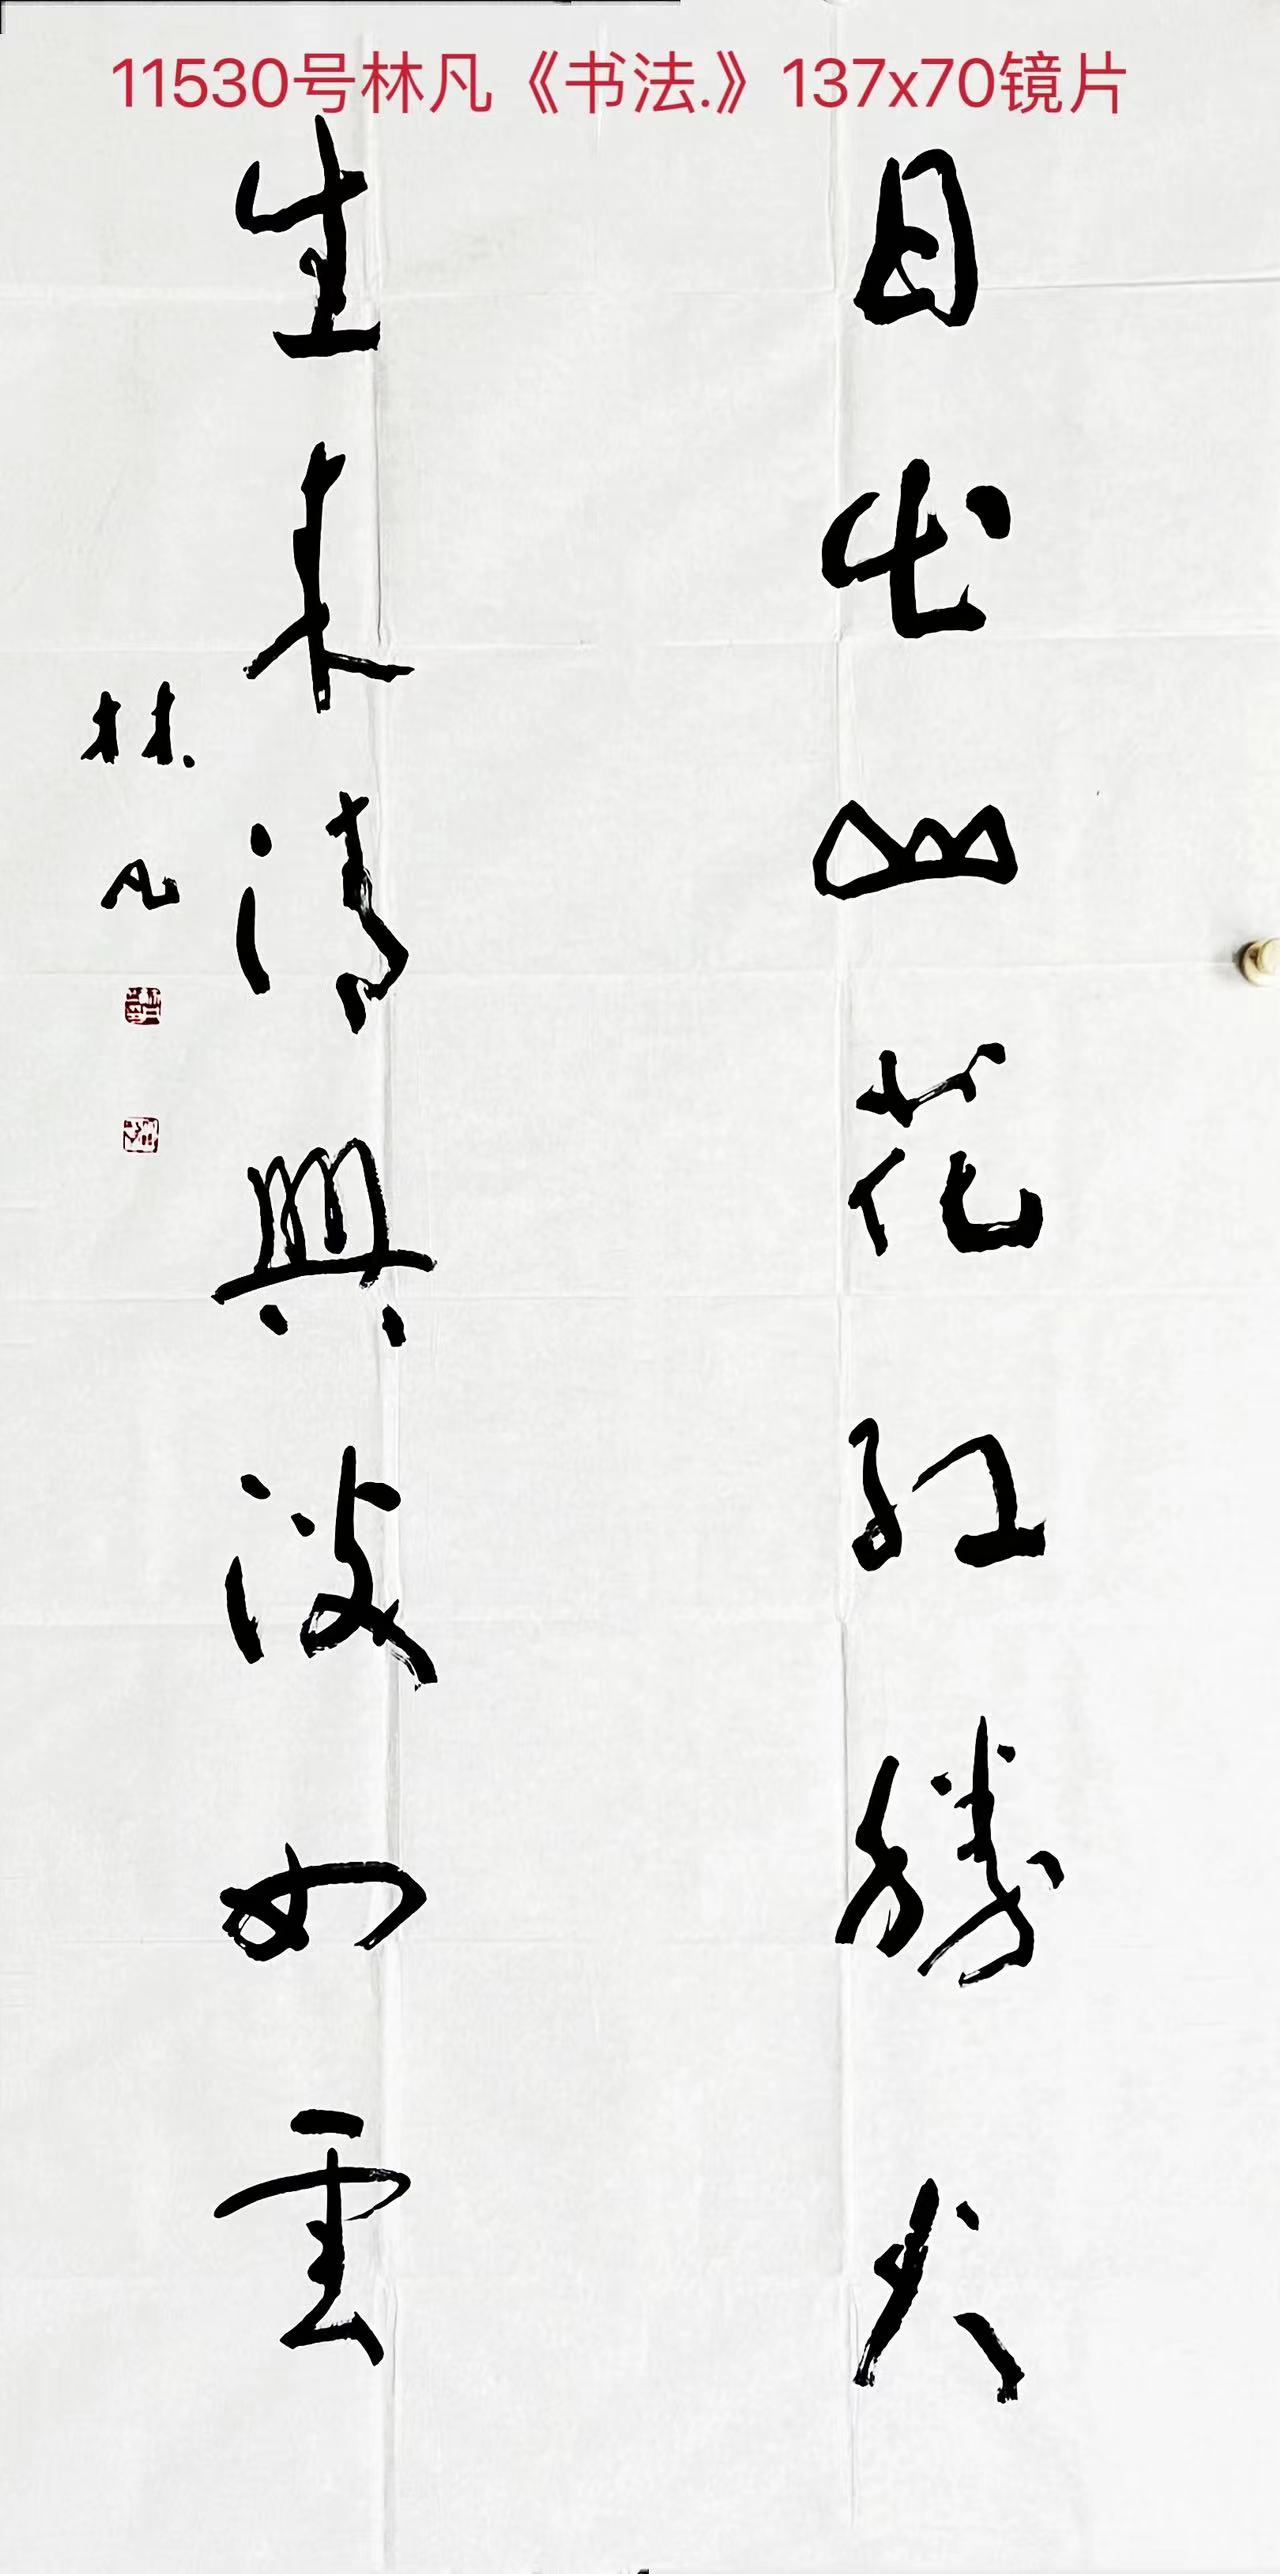 11530号林凡《书法.》137x70镜片
日出山花红勝火
生来清興波如雲
林凡